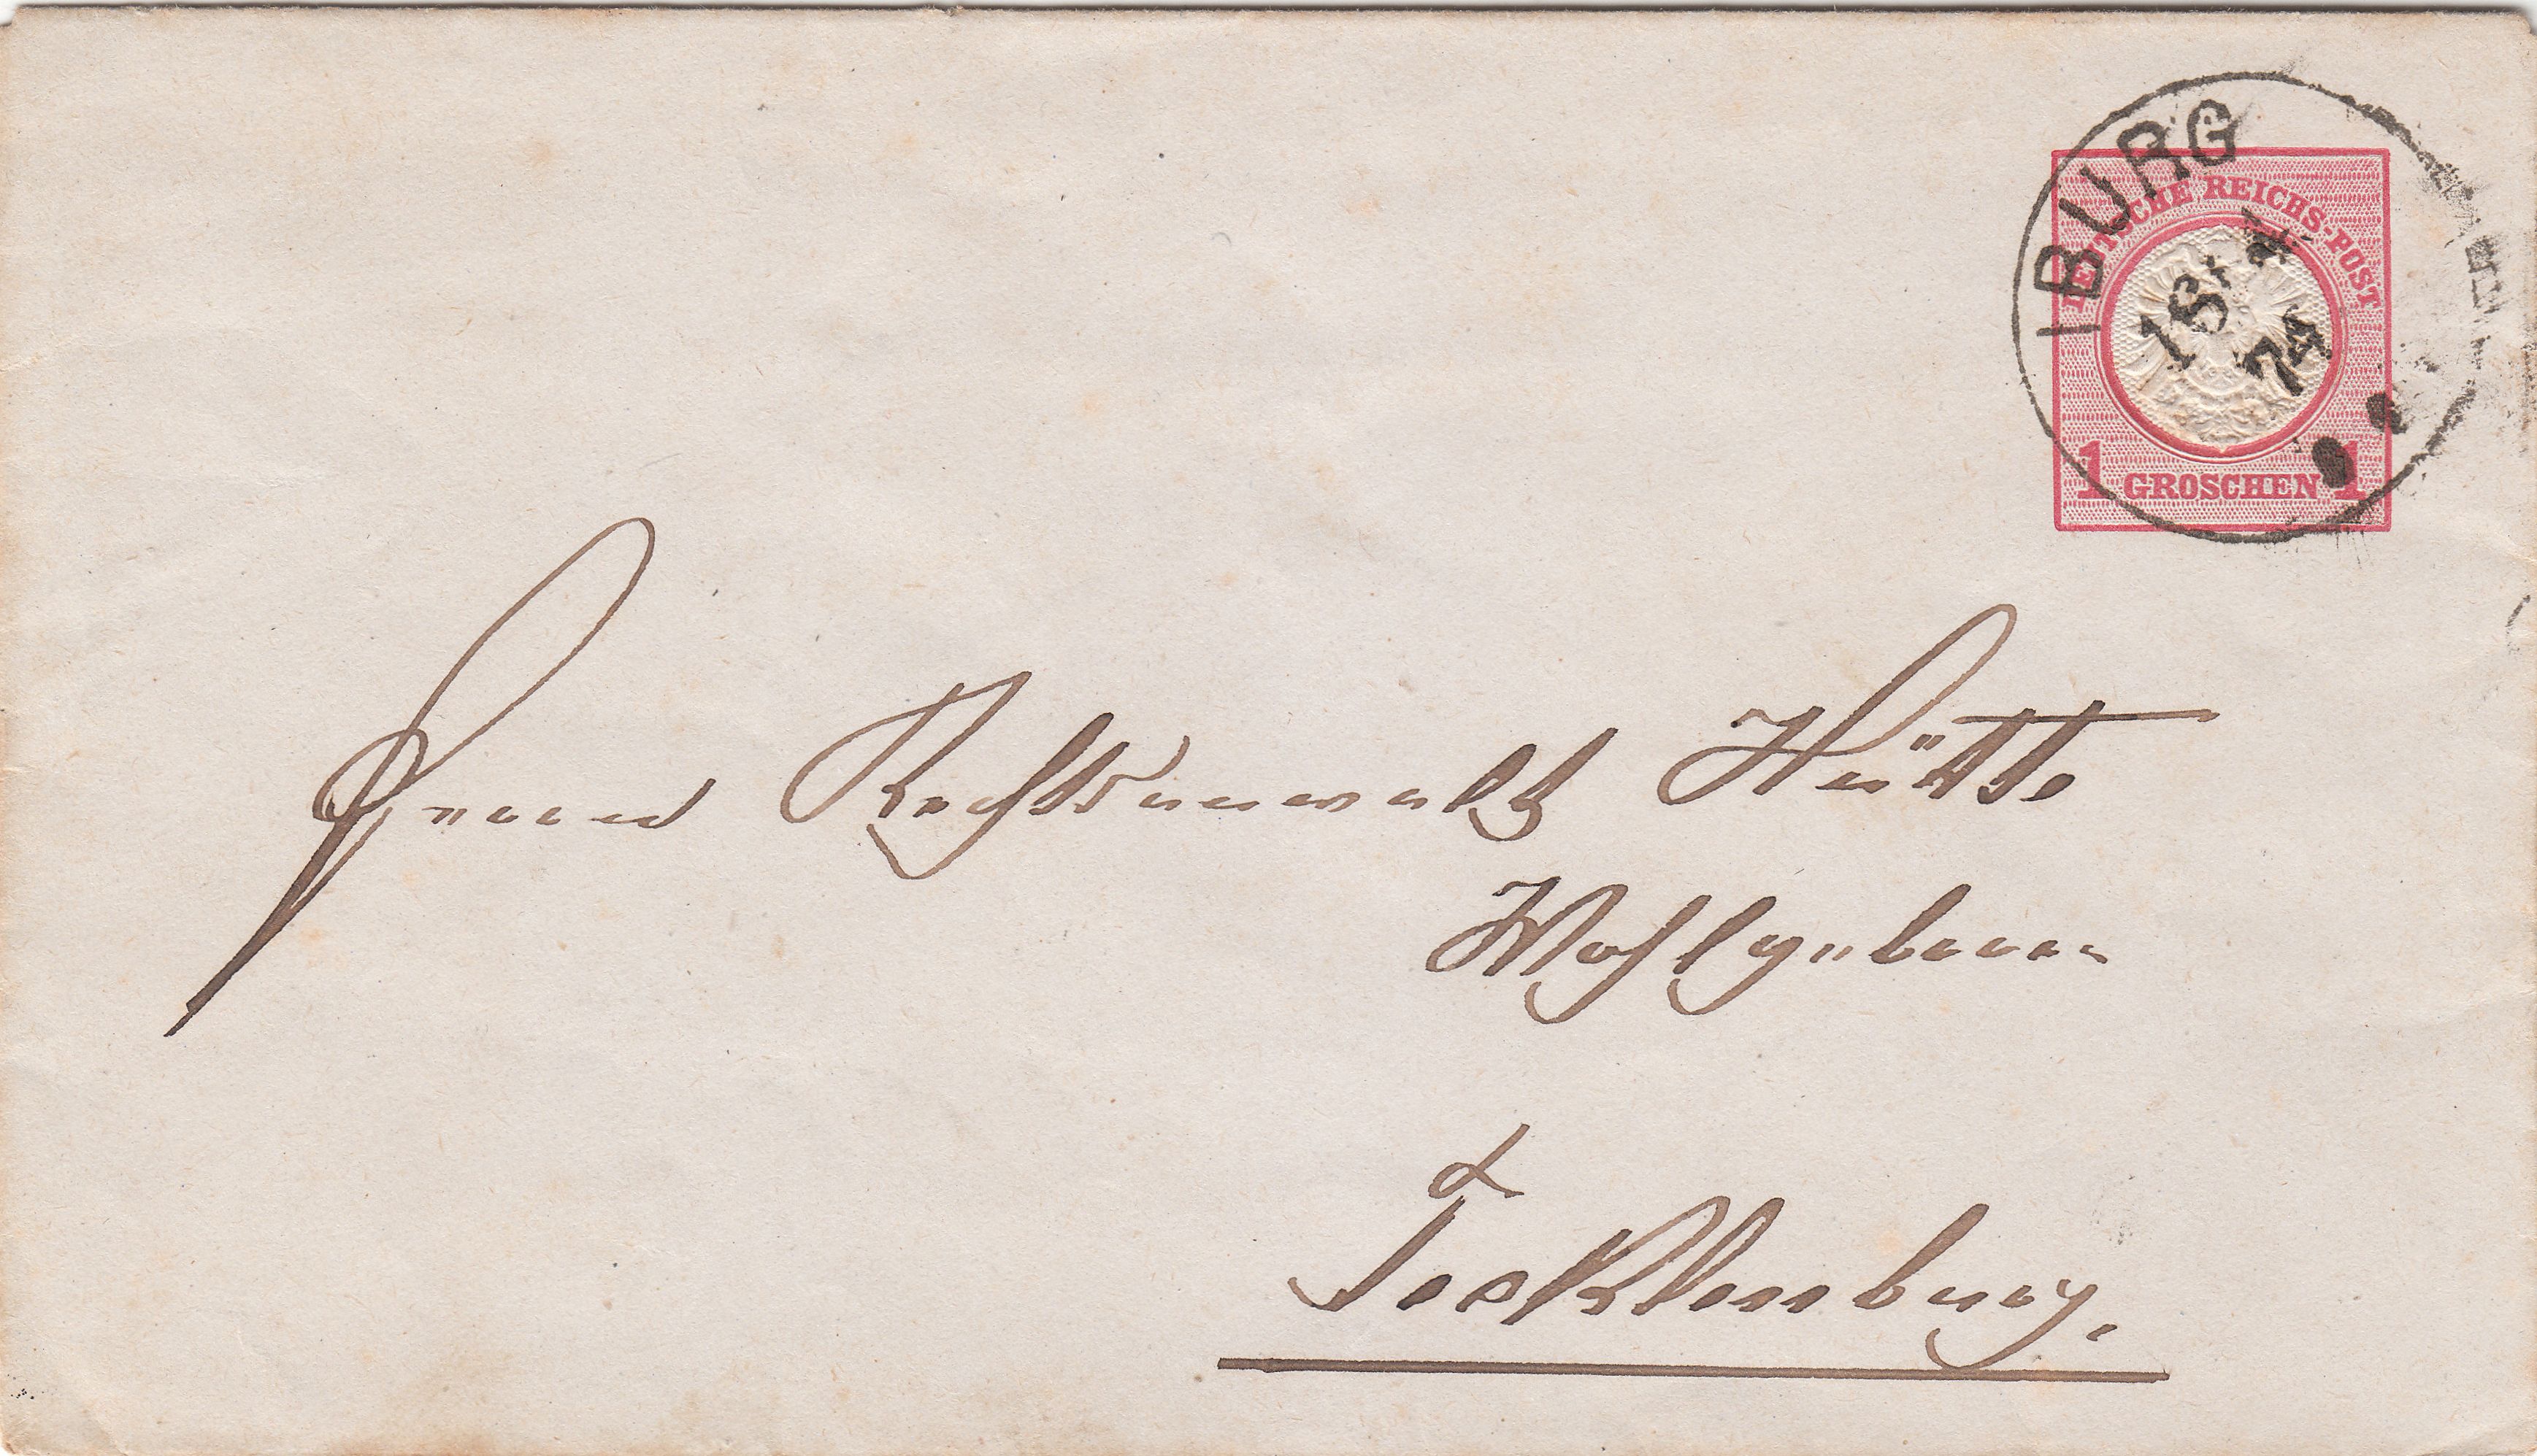 IBURG
DEUTSCHE REICHS-POST
16
74
1 GROSCHEN 1
Herrn Rechtsanwalt Hütte
Wohlgeboren
Tecklenburg.